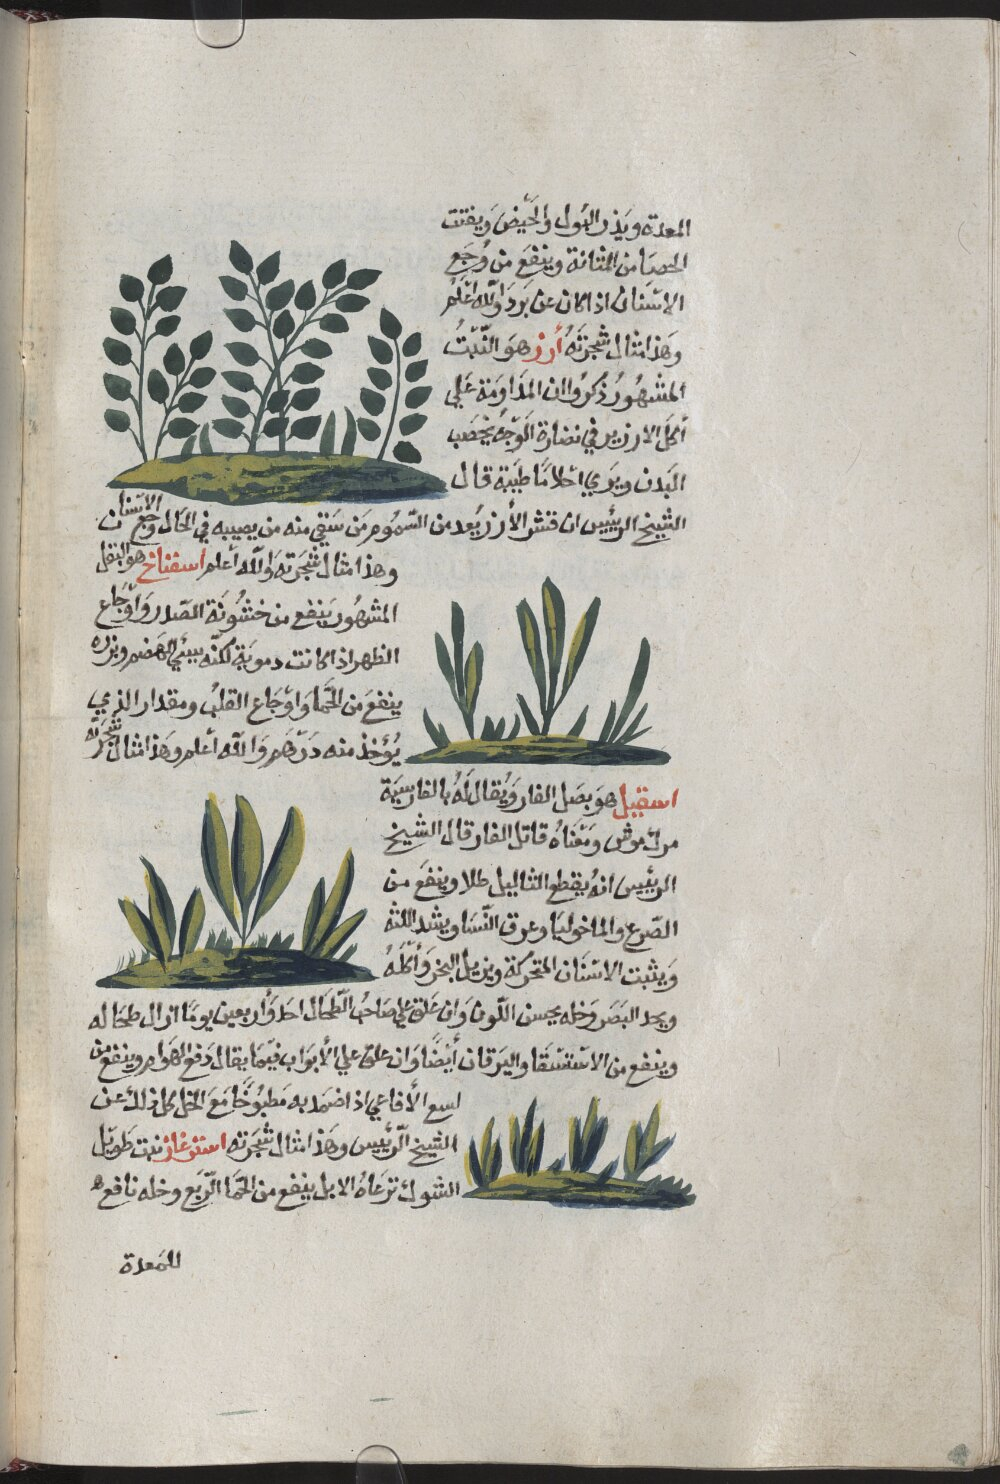 المعدة ويذر البول والحَيْض وَيفتت
الحصَا من المثانة وينفع من وُجَع
الاسْنَان اذا كان عن بَرد وَاللّه اعْلم
وَهَذا مثال شجرَتهُ أرز هوَ النّبْتُ
المشهُورُ ذكرُوا ان المدَاومَة عَلي
أكل الارز يزيد في نضارة الوَجْه يخصَب
البَدن ويَري احْلامًا طيبَة قال
الشيخ الرئيس ان قشر الأرز يُعد من السّمُوم مَن سَقي منه من يصيبه في الحَال وَجع الاسْنان
وهذا مثال شجرَته وَاللّه أعلم اسفناخ هو البَقل
المشهُور يَنفع من خشُونَة الصَدر وَاوْجَاع
الظهر اذا كانت دمويَة لكنّه يبسئ الهَضم وبزره
ينفعَ من الحمَّا وَاوْجَاع القلبْ ومقدار الذي
يُؤخذ منه دَرْهَم وَاللّه أعلم وهَذا مثال شجَرَته
اسقيل هوَ بصَل الفار وَيُقال لهُ بالفارسيَة
مرك موش ومَعْنَاهُ قاتل الفار قال الشيخ
الرئيس انهُ يقطع الثاليل طلا وينفَع من
الصّرع والماخوليَا وعرق النّسَا ويشد اللثه
وَيثبت الاسْنَان المتحركة ويزيل البخر وَاكلهُ
ويحد البَصَر وَخله يحسن اللّون وَان عَلق علي صَاحبُ الطّحال احدَ وَأربعين يومًا ازال طحاله
وينفع من الاسْتسْقا واليَرقان أيْضًا وَان علق علي الأبوَاب فيْمَا يقال دَفع الهَوام وينفع من
لسع الأفاعي اذا ضمد به مَطبُوخًا مَعَ الخل كل ذلكَ عن
الشيخ الرّئيس وهَذا مثال شجَرته اسْترغاز نبت طوَيْل
الشوك ترعَاهُ الابل ينفع من الحمّا الرّبَع وخله نافع
للمَعدة